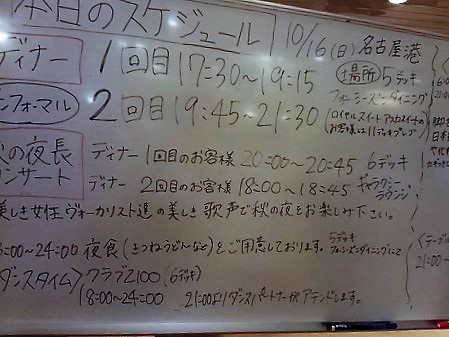 本日のスケジュール
10/16(日)名古屋港
ディナー 1回目 17:30〜19:15
場所 5デッキ
フォーシーズンダイニング
フォーマル 2回目 19:45〜21:30
(ロイヤルスイート アスカスイートの
お客様は11デッキプレゴ)
の夜長
コンサート
ディナー 1回目のお客様 20:00〜20:45 6デッキ
ディナー 2回目のお客様 18:00〜18:45 ギャラクシーラウンジ
美しき女性ヴォーカリスト達の美しき歌声で秋の夜をお楽しみ下さい。
:00〜24:00 夜食(きつねうどんなど)をご用意しております。5デッキ
フォーシーズンダイニングにて
ダンスタイム〉クラブ2100(6デッキ)
18:00〜24:00 21:00よりダンスパートナーがアテンドします。
21:00
日本
〈テーブル
21:00〜